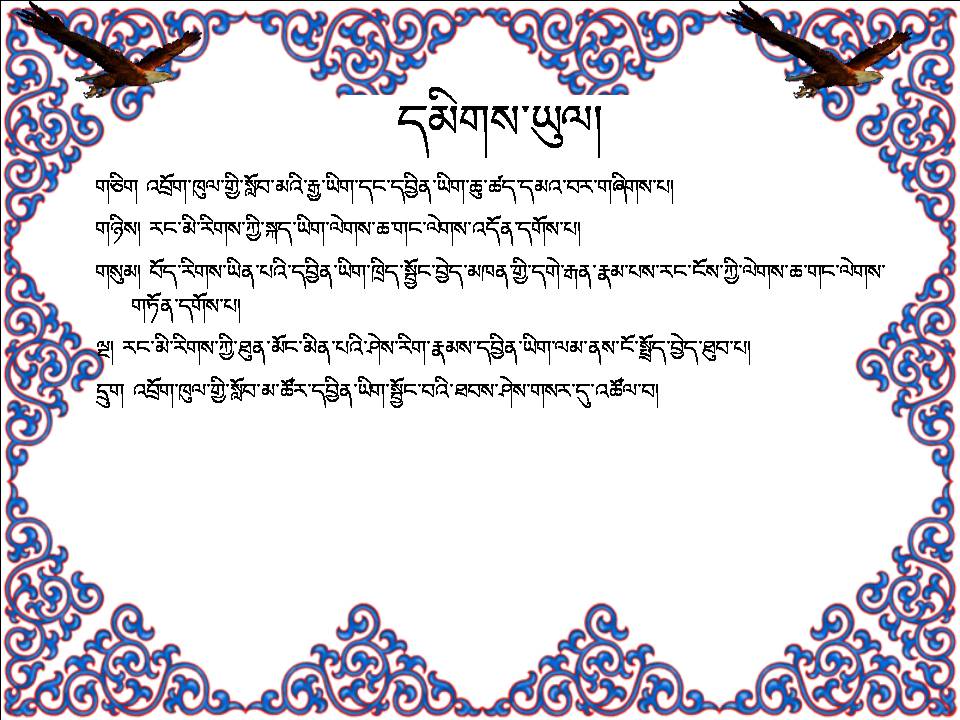 དམིགས་ཡུལ།
གཅིག འབྲོག་ཁུལ་གྱི་སློབ་མའི་རྒྱ་ཡིག་དང་དབྱིན་ཡིག་ཆུ་ཚད་དམའ་བར་གཞིགས་པ།
གཉིས། རང་མི་རིགས་ཀྱི་སྐད་ཡིག་ལེགས་ཆ་གང་ལེགས་འདོན་དགོས་པ།
གསུམ། བོད་རིགས་ཡིན་པའི་དབྱིན་ཡིག་ཁྲིད་སྦྱོང་བྱེད་མཁན་གྱི་དགེ་རྒན་རྣམ་པས་རང་ངོས་ཀྱི་ལེགས་ཆ་གང་ལེགས་
གཏོན་དགོས་པ།
ལྔ། རང་མི་རིགས་ཀྱི་ཐུན་མོང་མིན་པའི་ཤེས་རིག་རྣམས་དབྱིན་ཡིག་ལམ་ནས་ངོ་སྤྲོད་བྱེད་ཐུབ་པ།
དྲུག འབྲོག་ཁུལ་གྱི་སློབ་མ་ཚོར་དབྱིན་ཡིག་སྦྱོང་བའི་ཐབས་ཤེས་གསར་དུ་འཚོལ་བ།